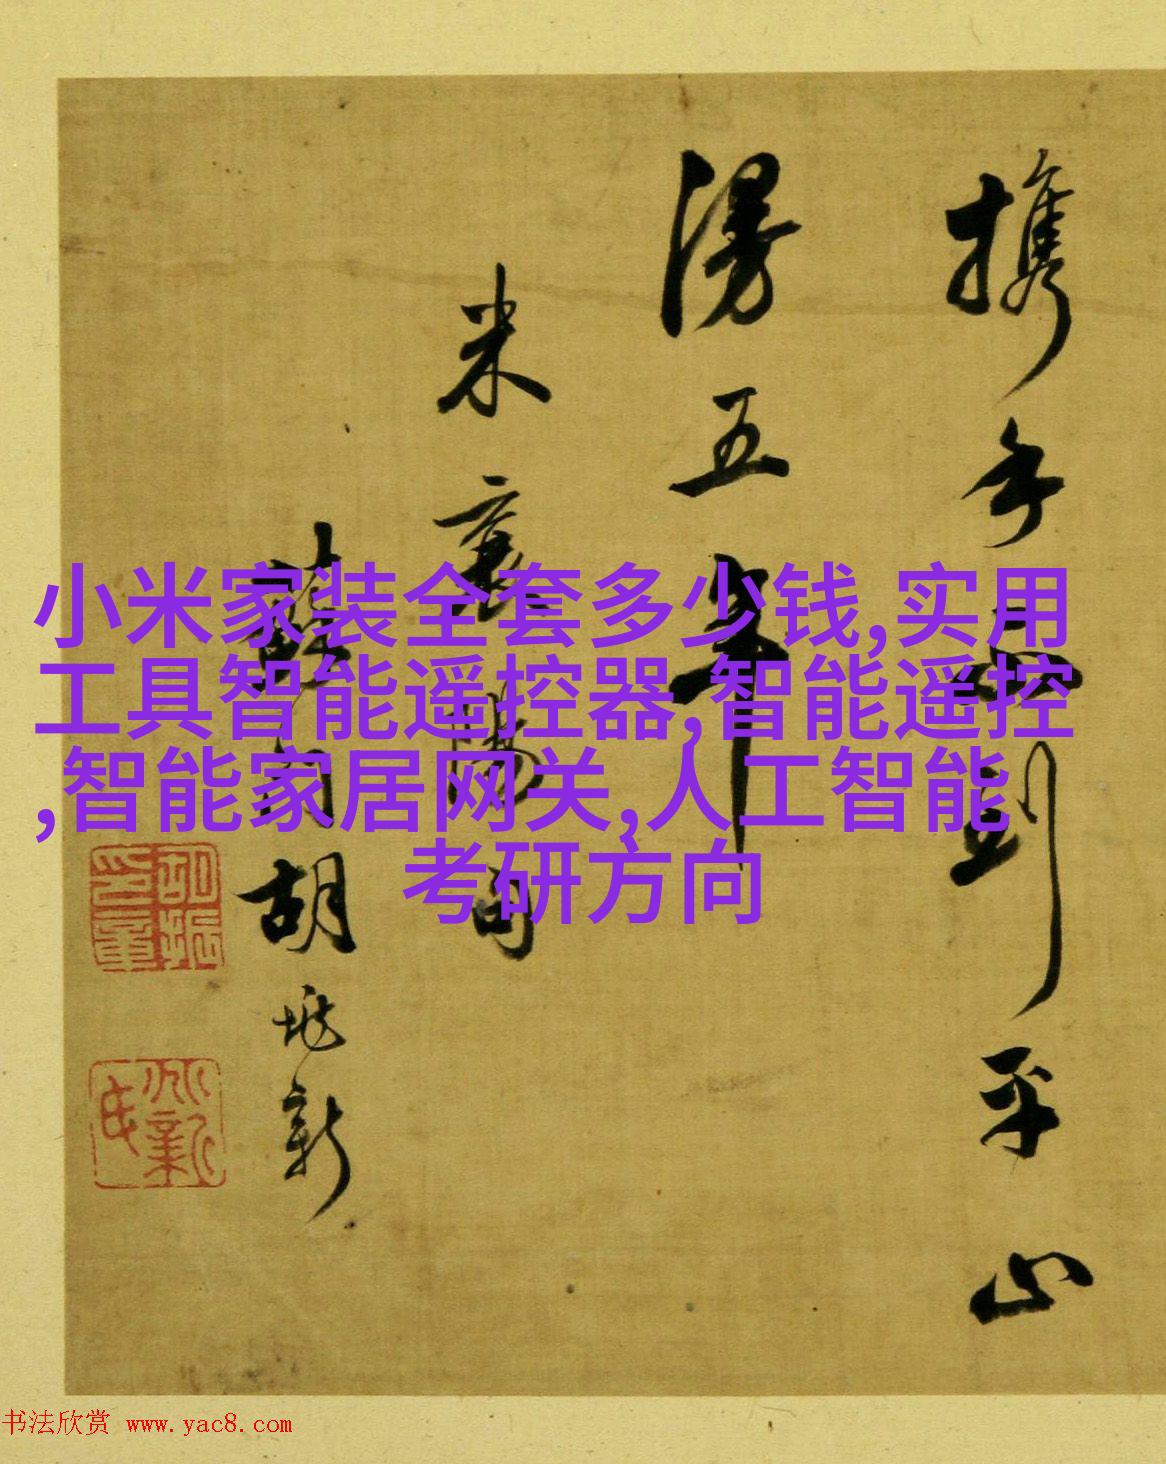 携手平山
漫五年
米襄陽句
胡新
小米家装全套多少钱,实用
工具智能遥控器,智能遥控
,智能家居网关,人工智能
考研方向
书法欣赏 www.yac8.com